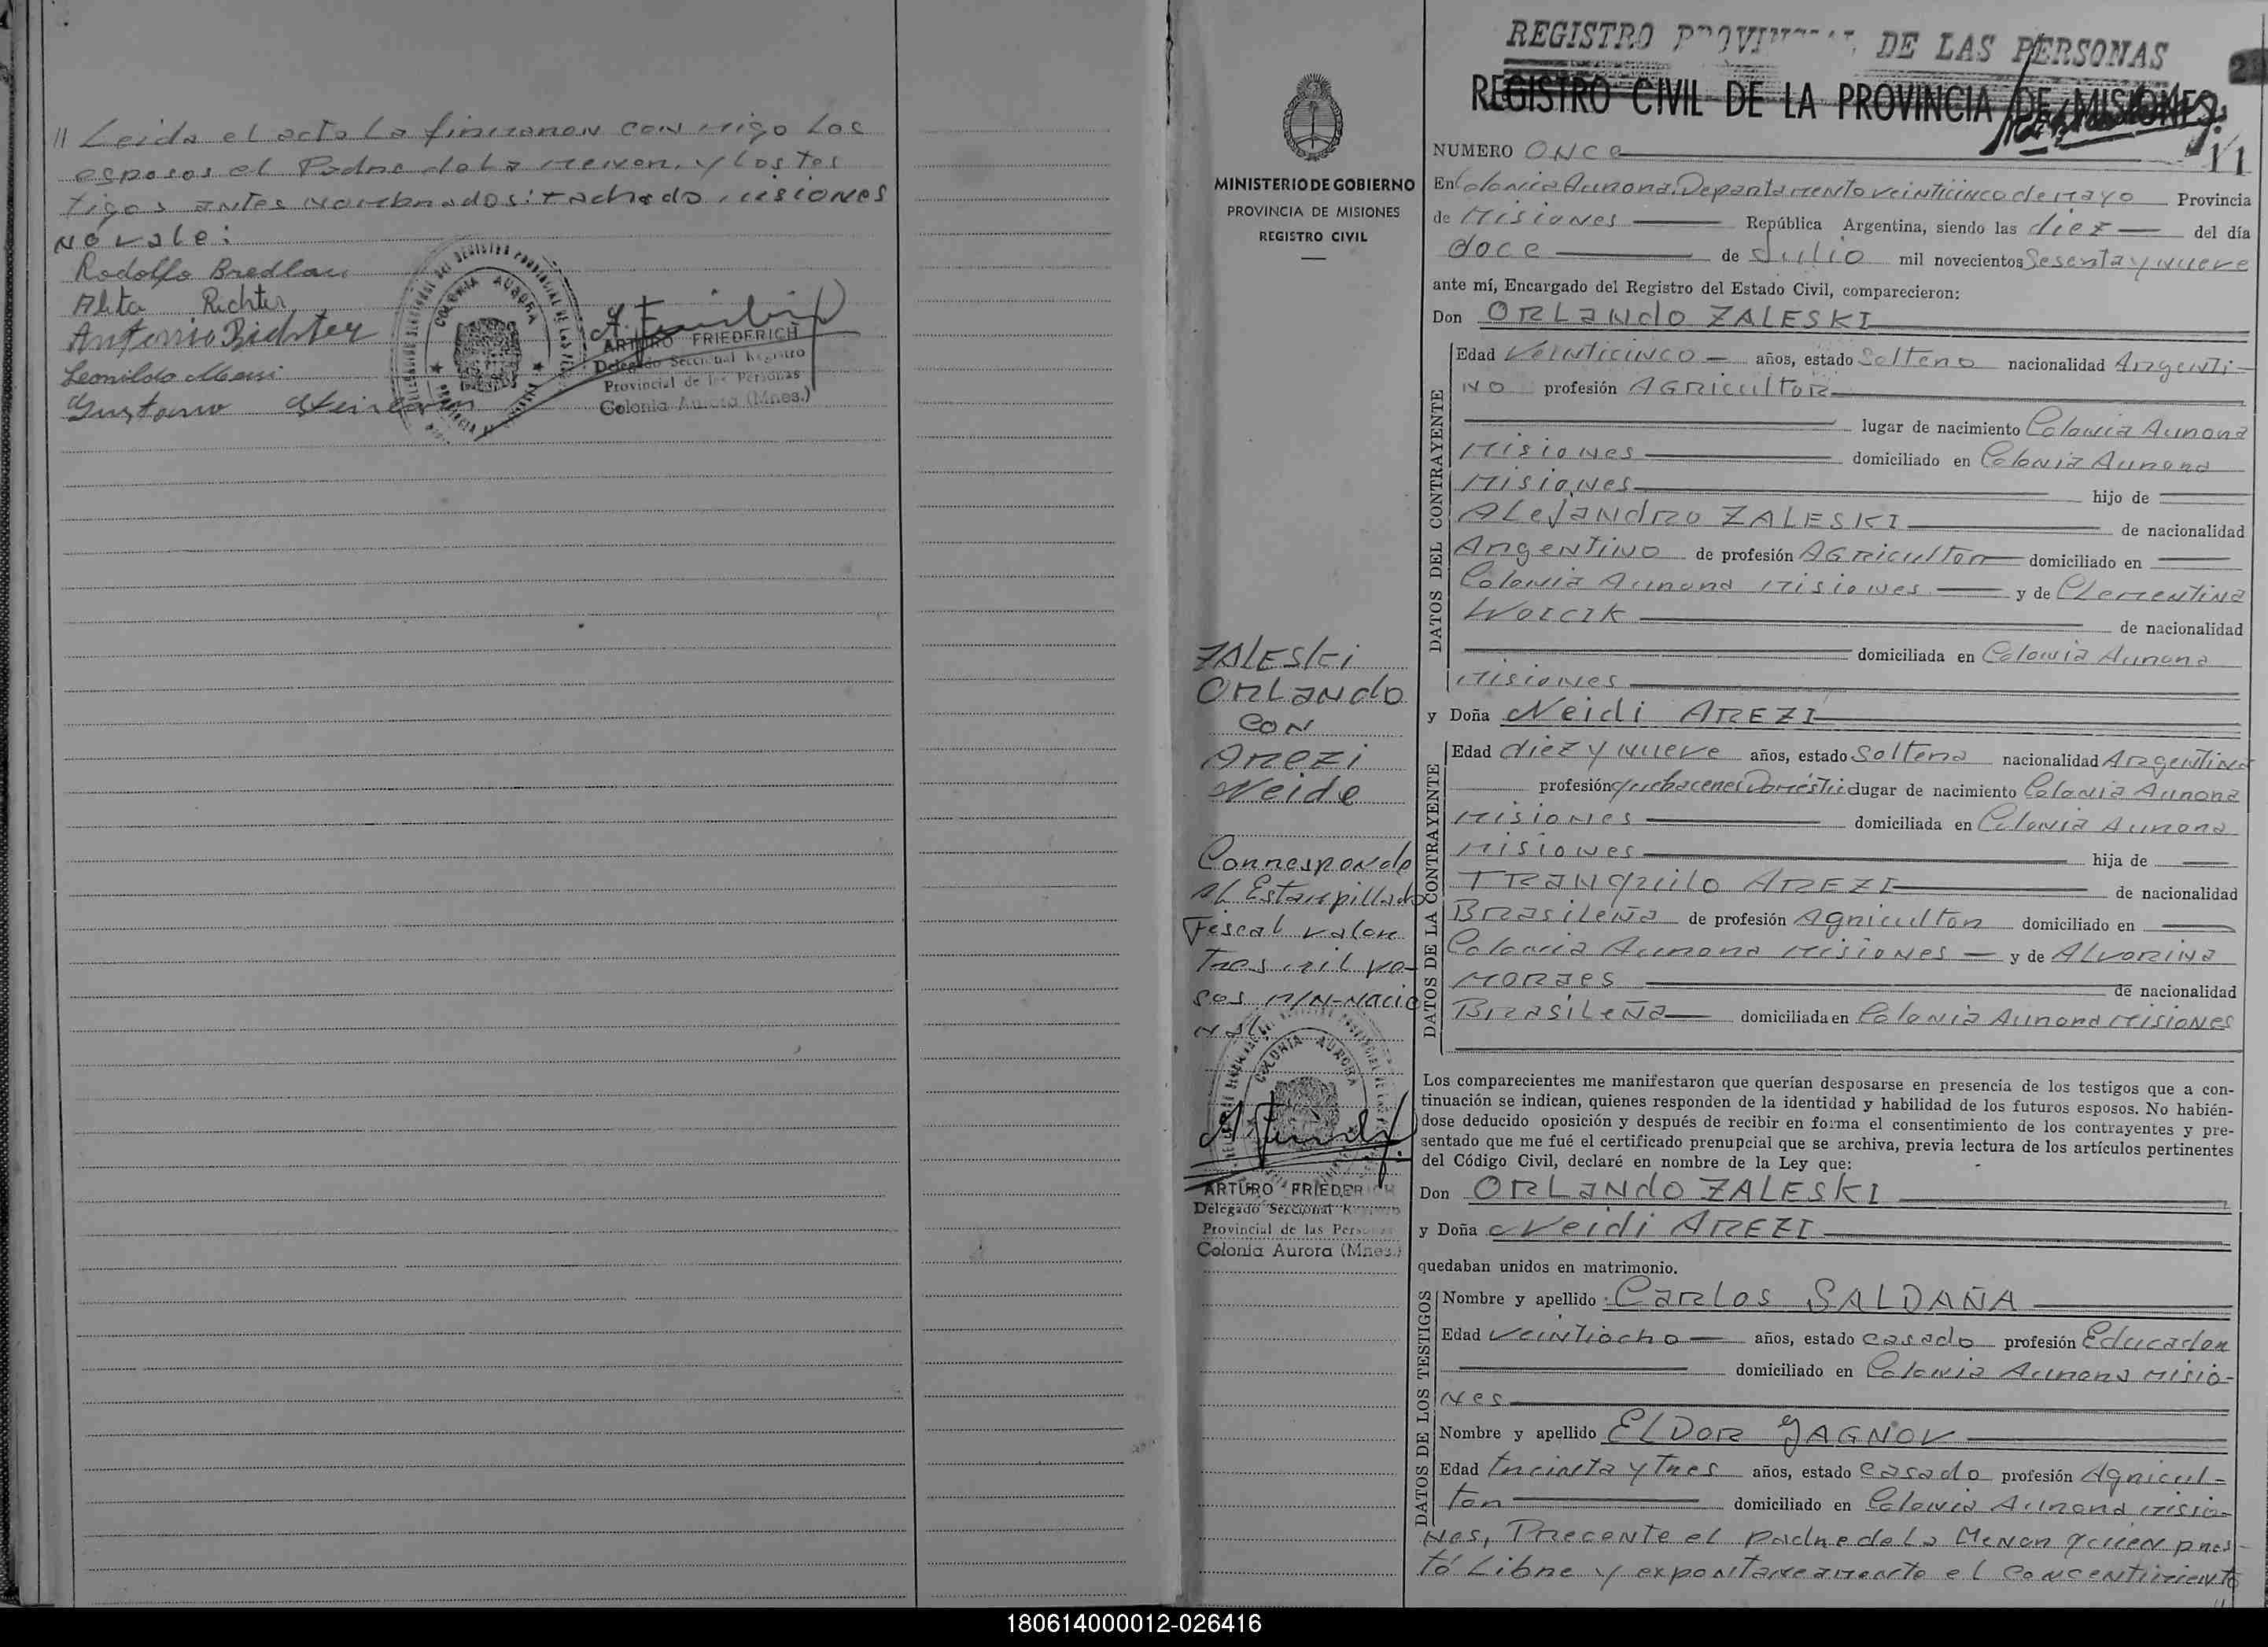 // Leida el acta La firmaron con migo Los
esposos el Padre de La menor, y Los tes
tigos antes nombrados: tachado, misiones
nó vale:
Rodolfo Bredlau
Alita Richter
Antonio Richter
Leonildo
Gustavo
COLONIA AURORA
ARTURO FRIEDERICH
Delegado Seccional Registro
Provincial de las Personas
Colonia Aurora (Mnes.)
REGISTRO PROVINCIAL DE LAS PERSONAS
REGISTRO CIVIL DE LA PROVINCIA DE MISIONES
MINISTERIO DE GOBIERNO
PROVINCIA DE MISIONES
REGISTRO CIVIL
ZALESKi
ORLANdo
CON
AREZi
Neide
Corresponde
al Estampillado
Fiscal valor
Tres mil pe-
sos M/N-Nacio
NAL
COLONIA AURORA
ARTURO FRIEDERICH
Delegado Seccional Registro
Provincial de las Personas
Colonia Aurora (Mnes.)
NUMERO ONCe 11
En Colonia Aurora. Departamento veinticinco de mayo Provincia
de Misiones República Argentina, siendo las diez del día
doce de Julio mil novecientos Sesenta y nueve
ante mí, Encargado del Registro del Estado Civil, comparecieron:
Don ORLANdO ZALESKI
DATOS DEL CONTRAYENTE
Edad Veinticinco años, estado Soltero nacionalidad Argenti-
NO profesión AGRICULTOR
lugar de nacimiento Colonia Aurora
Misiones domiciliado en Colonia Aurora
Misiones hijo de
ALeJANdRO ZALESKI de nacionalidad
Argentino de profesión AGRicultor domiciliado en
Colonia Aurora Misiones y de CLementina
WOICIK de nacionalidad
domiciliada en Colonia Aurora
Misiones
y Doña Neidi AREZI
DATOS DE LA CONTRAYENTE
Edad diez y nueve años, estado Soltera nacionalidad Argentina
profesión quehaceres Domésticos lugar de nacimiento Colonia Aurora
Misiones domiciliada en Colonia Aurora
Misiones hija de
TRANquilo AREZI de nacionalidad
BRasileña de profesión Agricultor domiciliado en
Colonia Aurora Misiones y de ALvorina
MORaes de nacionalidad
BRASiLeÑa domiciliada en Colonia Aurora Misiones
Los comparecientes me manifestaron que querían desposarse en presencia de los testigos que a con-
tinuación se indican, quienes responden de la identidad y habilidad de los futuros esposos. No habién-
dose deducido oposición y después de recibir en forma el consentimiento de los contrayentes y pre-
sentado que me fué el certificado prenupcial que se archiva, previa lectura de los artículos pertinentes
del Código Civil, declaré en nombre de la Ley que:
Don ORLANdo ZALESKI
y Doña Neidi AREZI
quedaban unidos en matrimonio.
DATOS DE LOS TESTIGOS
Nombre y apellido Carlos SALDAÑA
Edad veintiocho años, estado casado profesión Educador
domiciliado en Colonia Aurora Misio-
Nes
Nombre y apellido ELDOR GAGNOV
Edad treinta y tres años, estado casado profesión Agricul-
tor domiciliado en Colonia Aurora Misio-
Nes, Precente el padre de La Menor quien pres-
tó Libre y expontaneamente el concentimiento
//
180614000012-026416